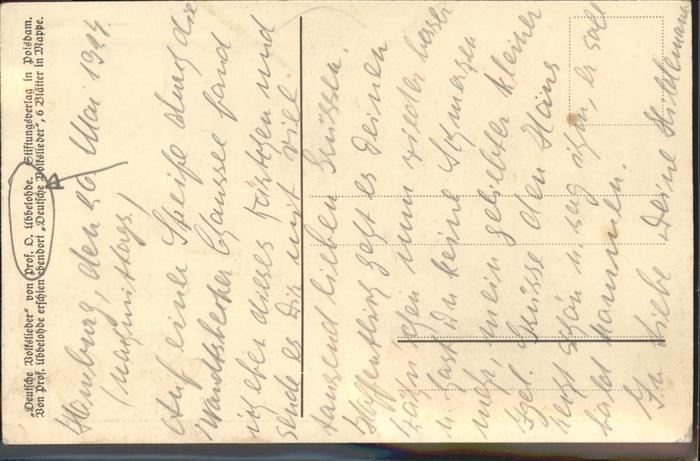 "Deutsche Volkslieder" von Prof. O. Ubbelohde. Stiftungsverlag in Potsdam.
Von Prof. Ubbelohde erschien ebendort "Deutsche Volkslieder", 6 Blätter in Mappe.
Hamburg, den 26. Mai 1944
nachmittags.
Auf einer Streife durch die
Wandsbecker Chaussee fand
ich eben dieses Kärtchen und
sende es Dir mit viel
tausend lieben Grüssen.
Hoffentlich geht es Deinen
Zähnchen nun wieder besser
u. hast Du keine Schmerzen
mehr, mein geliebter kleiner
Igel. Grüsse den Hans
herzl. schön u. sag ihm, er soll
bald kommen.
In Liebe Deine